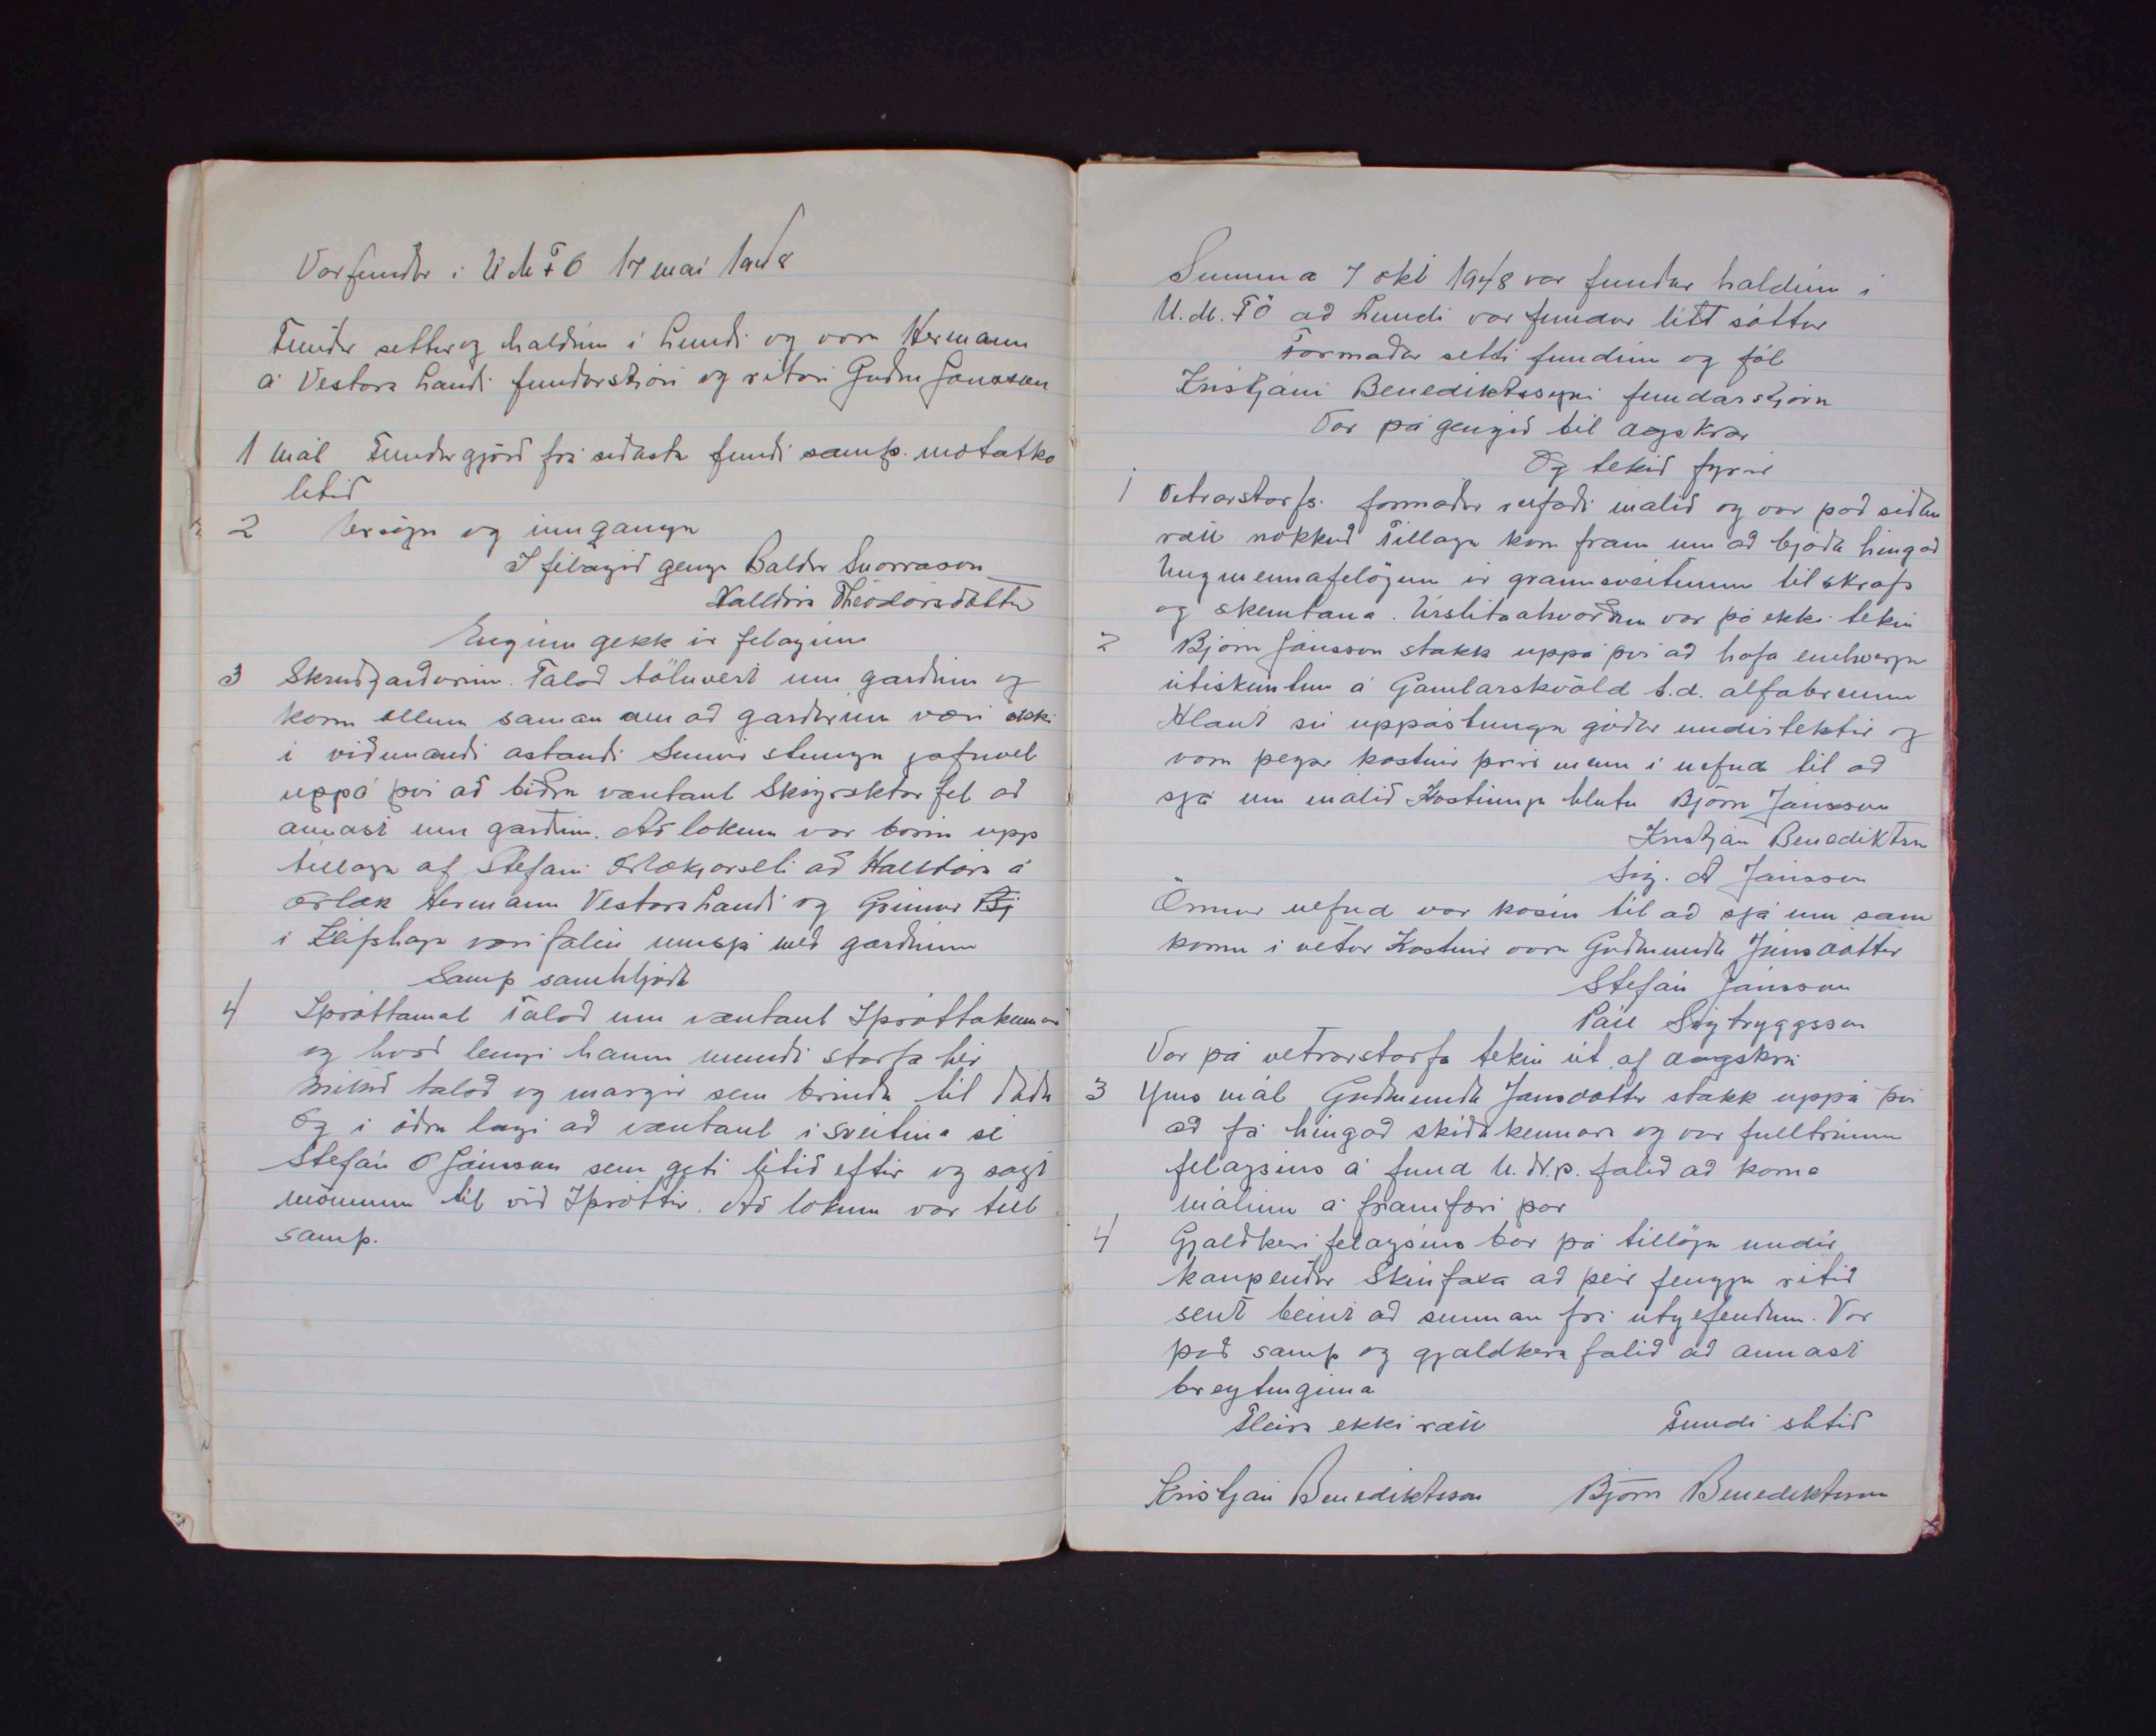 Vorfundur í U M F Ö 17 mai 1948
Fundur settur og haldinn i Lundi og voru Hermann
á Vestara Landi fundarstjóri og ritari Gudm Jónsson
1 mál Fundargjörd frá sidasta fundi samþ. mótatkv
litid
2 Ursögn og innganga
I félagid genga Baldur Snorrason
Halldóra Theódórsdóttir
Enginn gekk úr felaginu
3 Skrudgardurinn. Talad töluvert um gardinn og
kom ollum saman um ad gardurinn væri ekki
i vidunandi astandi Sumir stungu jafnvel
uppá því ad bidja væntanl Skógræktar fel ad
annast um gardinn. Ad lokum var borin upp
tillaga af Stefani Ærlækjarseli ad Halldóra á
Ærlæk Hermann Vestara Landi og Grimur Bj
i Klifshaga væri falin umsjá med gardinum
Samþ samhljóda
4 Iþróttamal Talad um væntanl Iþróttakennara
og hvad lengi hann mundi starfa hér
Mikid talad og margir sem brinda til dáda
Og i ödru lagi ad væntanl i sveitina sé
Stefán Ó Jónsson sem geti litid eftir og sagt
mönnum til vid Iþróttir. Ad lokum var till
samþ.
Sunnu a 7 okt 1948 var fundur haldinn i
U.M.FÖ ad Lundi var fundur litt sóttur
Formadur setti fundinn og fól
Kristjáni Benediktssyni fundarstjórn
Var þá gengid til dagskrár
Og tekid fyrir
1 Vetrarstarfs. formadur reifadi málid og var þad sidan
rætt nokkud Tillaga kom fram um ad bjóda hingad
Ungmennafelögum úr grannsveitunum til skrafs
og skemtana. Urslitaakvördun var þó ekki tekin
2 Björn Jónsson stakk uppá því ad hafa einhverja
útiskemtun á Gamlarskvöld t.d. alfabrennu
Hlaut sú uppástunga gódar undirtektir og
voru þegar kostnir þrir menn i nefnd til ad
sjá um málid Kostningu hlutu Björn Jónsson
Kristján Benediktsn
Sig. A Jónsson
Önnur nefnd var kosin til ad sjá um sam
komu i vetur Kostnir voru Gudmunda Jónsdóttir
Stefán Jónsson
Páll Sigtryggsson
Var þá vetrarstarfs tekin út af dagskrá
3 Yms mál Gudmunda Jónsdóttir stakk uppá því
ad fá hingad skidakennara og var fulltrúum
felagsins á fund U.N.Þ. falid ad koma
málinu á framfæri þar
4 Gjaldkeri felagsins bar þá tillögu undir
kaupendur Skinfaxa ad þeir fengju ritid
sent beint ad sunnan frá útgefendum. Var
þad samþ og gjaldkera falid ad annast
breytinguna
Fleira ekki rætt Fundi slitid
Kristján Benediktsson Björn Benediktsson